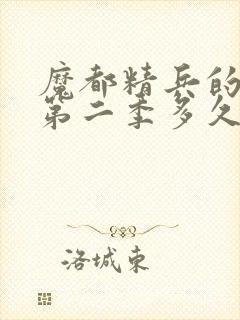 魔都精兵的
第二季多久
洛城東